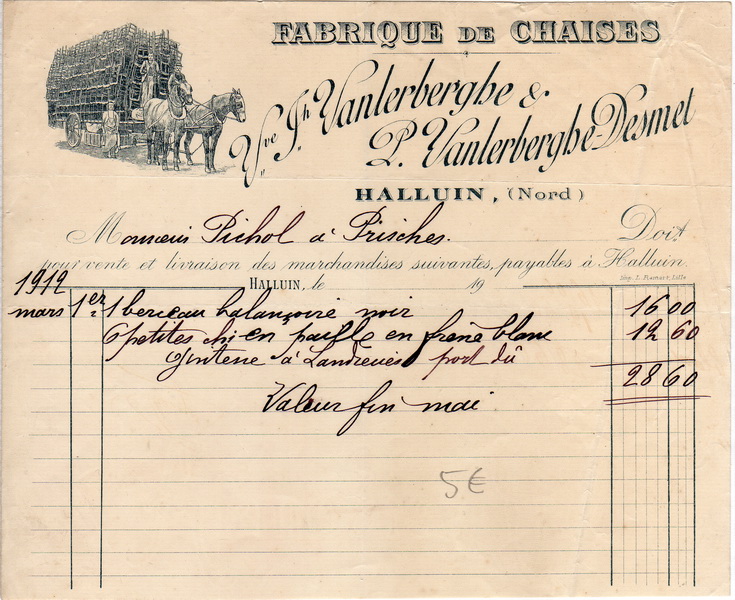 FABRIQUE DE CHAISES
Vve Jh Vanlerberghe &
P. Vanlerberghe-Desmet
HALLUIN, (Nord)
Monsieur Pichol à Prisches. Doit
pour vente et livraison des marchandises suivantes, payables à Halluin
Imp. L. Lille
1912 HALLUIN, le 19
mars 1er 1 berceau balançoire noir 16 00
6 petites ch en paille en frêne blanc 12 60
à Landrecies port dû
28 60
Valeur fin mai
5€